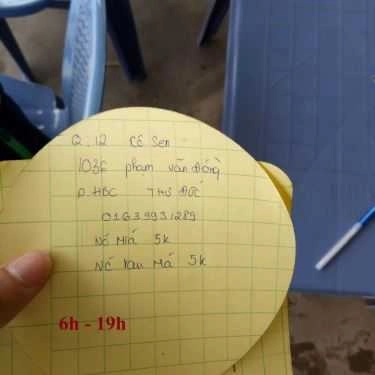 Q. 12 Cô Sen
1036 phạm văn Đồng
P. HBC THỦ ĐỨC
01639931289
Nc Mía 5k
Nc rau Má 5k
6h - 19h